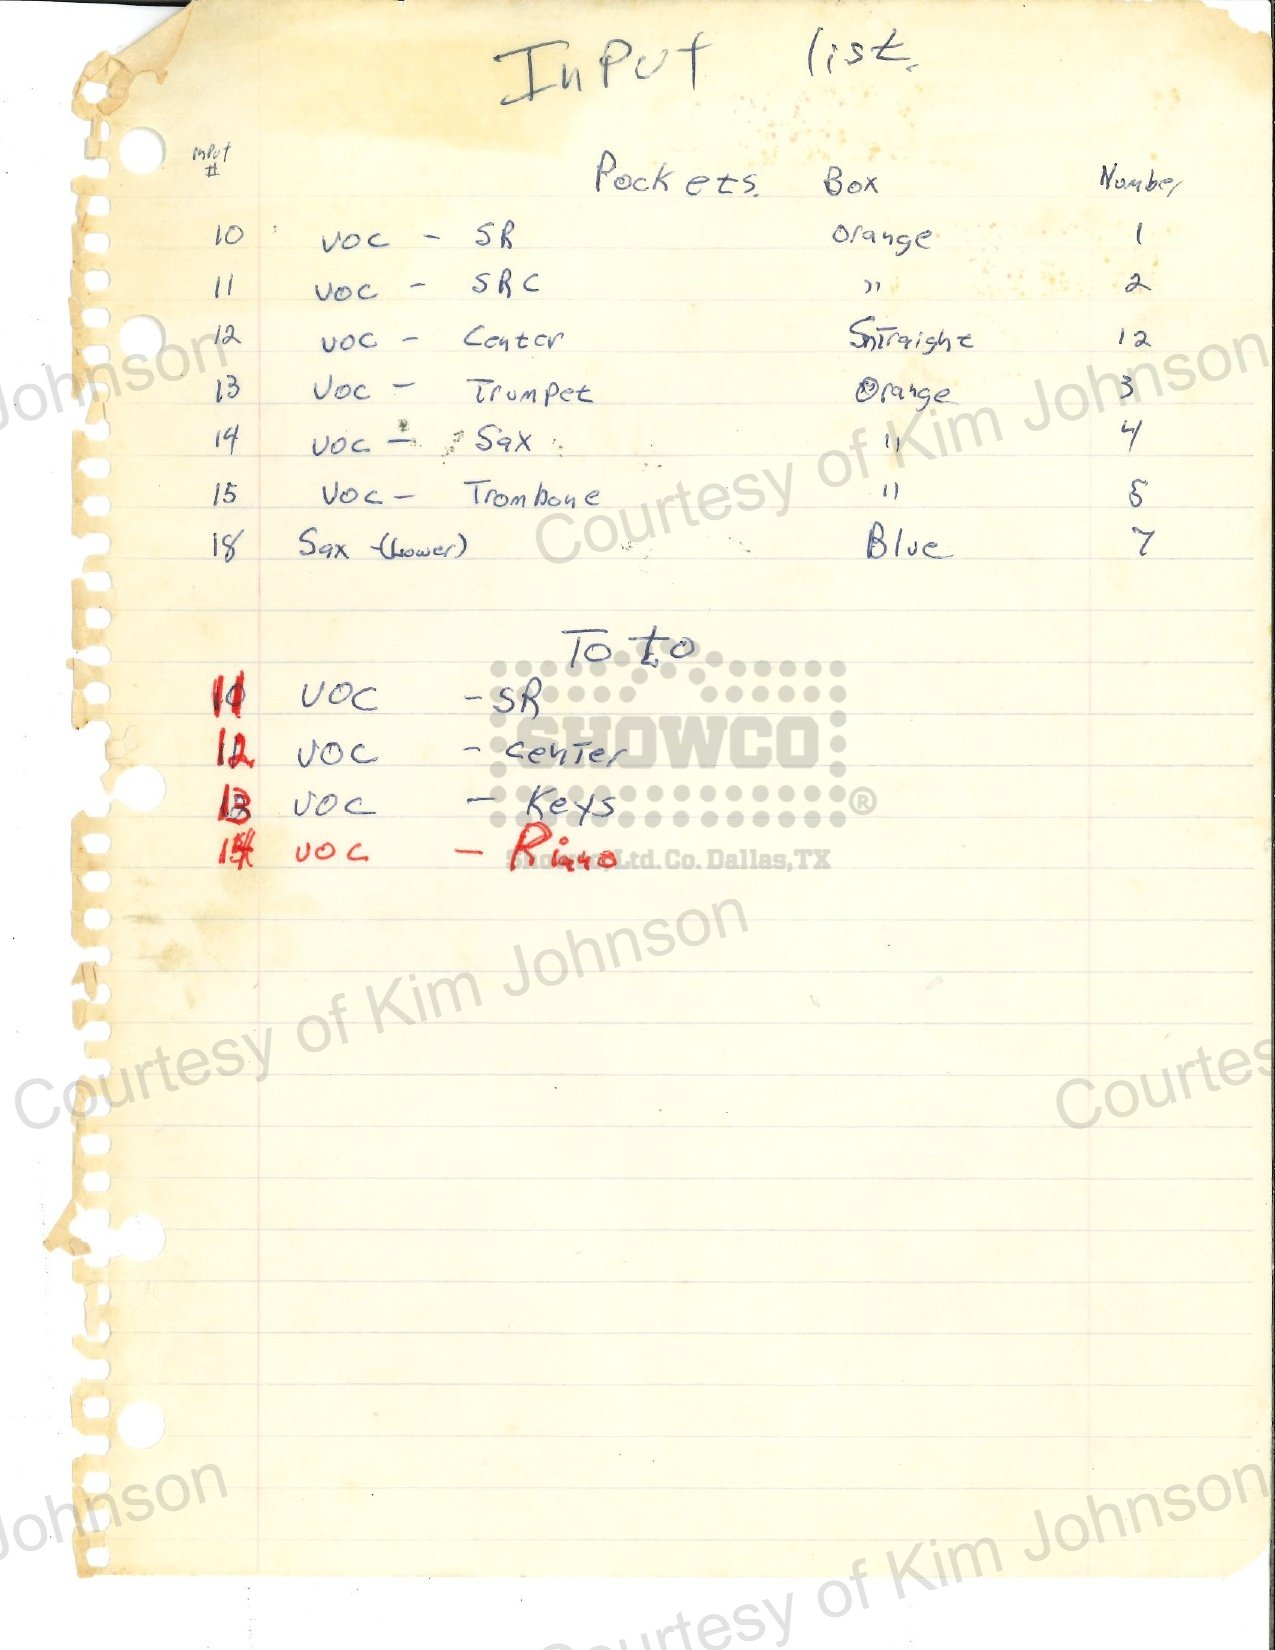 Input list.
input
#
Pockets. Box Number
10 VOC - SR Orange 1
11 VOC - SRC " 2
12 VOC - Center Straight 12
13 VOC - Trumpet Orange 3
14 VOC - Sax " 4
15 VOC - Trombone " 5
18 Sax - (Lower) Blue 7
Toto
11 VOC - SR
12 VOC - Center
13 VOC - Keys
VOC -
SHOWCO
®
Showco, Ltd. Co. Dallas, TX
Courtesy of Kim Johnson
Courtesy of Kim Johnson
Courtesy of Kim Johnson
Johnson
Courtes
Johnson